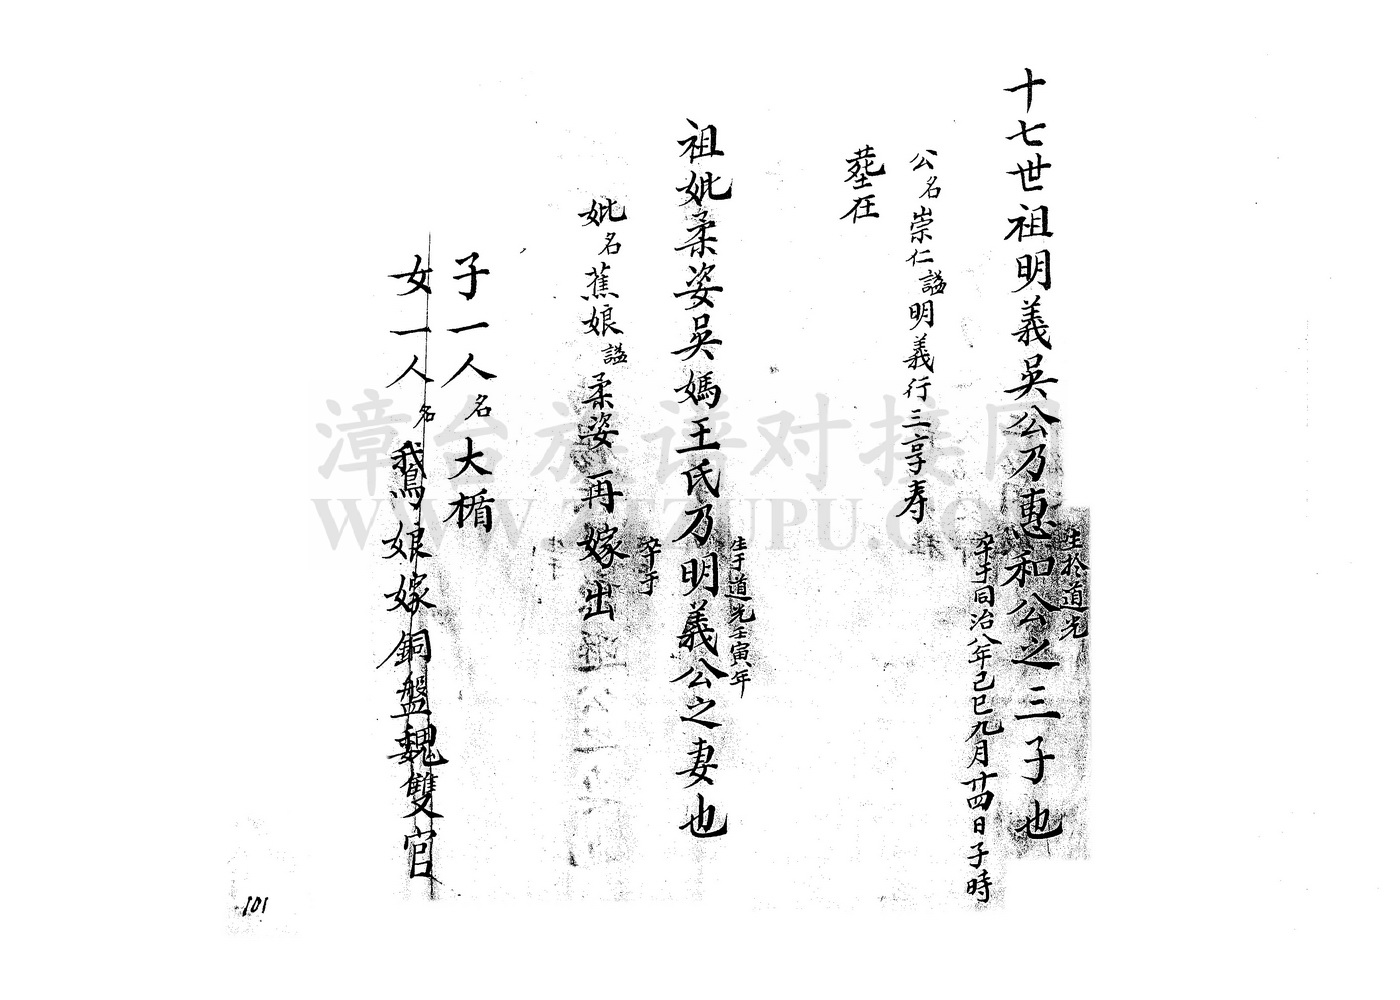 十七世祖明義吳公乃惠和公之三子也
生於道光
卒于同治八年己巳九月廿四日子時
公名崇仁諡明義行三享寿
葬在
祖妣柔姿吳媽王氏乃明義公之妻也
生于道光壬寅年
卒于
妣名蕉娘諡柔姿再嫁出
子一人名大楯
女一人名鵞娘嫁銅盤魏雙官
101
漳台族谱对接网
WWW.ZTZUPU.COM